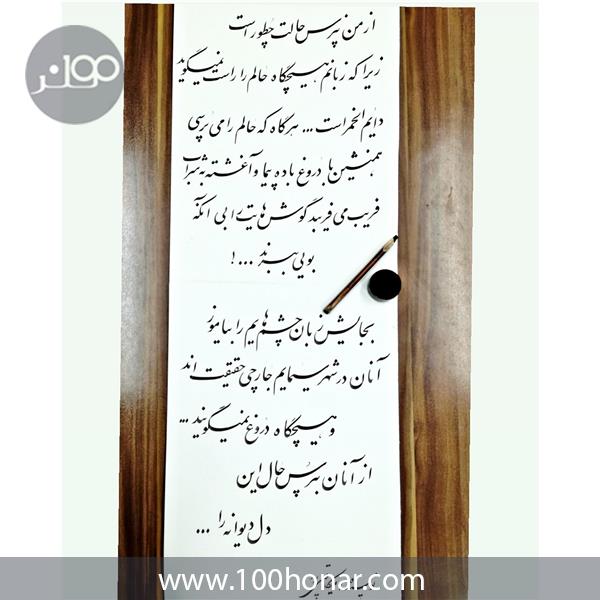 از من نپرس حالت چطور است
زیرا که زبانم هیچگاه حالم را راست نمیگوید
دایم الخمر است ... هر گاه که حالم را می پرسی
همنشین با دروغ باده پیما و آغشته به شراب
فریب می فریبد گوش هایت را بی آنکه
بویی ببرند ... !
بجایش زبان چشم هایم را بیاموز
آنان در شهر سیمایم جارچی حقیقت اند
و هیچگاه دروغ نمیگویند ...
از آنان بپرس حال این
دل دیوانه را ...
100هنر
www.100honar.com